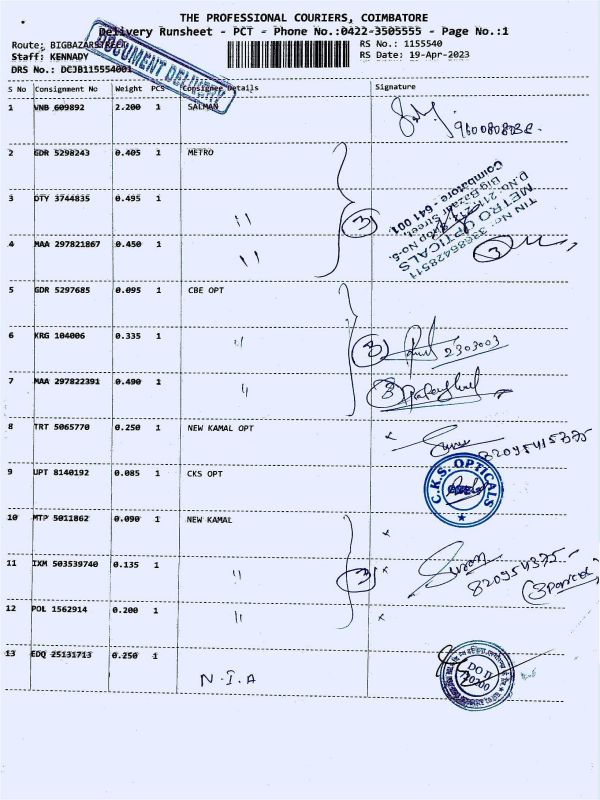 THE PROFESSIONAL COURIERS, COIMBATORE
Delivery Runsheet - PCT - Phone No.:0422-3505555 - Page No.:1
Route: BIGBAZARSTREET
RS No.: 1155540
Staff: KENNADY
RS Date: 19-Apr-2023
DRS No.: DCJB115554001
DOCUMENT DELIVERY
S No Consignment No Weight PCS Consignee Details Signature
1 VNB 609892 2.200 1 SALMAN
2 GDR 5298243 0.405 1 METRO
3 DTY 3744835 0.495 1 "
4 MAA 297821867 0.450 1 "
3
TIN No: 33686428511
METRO OPTICALS
D.No. 21 Shop No-5,
Big Bazaar Street,
Coimbatore - 641 001.
3
5 GDR 5297685 0.095 1 CBE OPT
6 KRG 104006 0.335 1 "
3 2303003
7 MAA 297822391 0.490 1 "
3
8 TRT 5065770 0.250 1 NEW KAMAL OPT
x
9 UPT 8140192 0.085 1 CKS OPT
C.K.S. OPTICALS
10 MTP 5011862 0.090 1 NEW KAMAL
x
11 IXM 503539740 0.135 1 "
3 x
12 POL 1562914 0.200 1 "
x
13 EDQ 25131713 0.250 1
N.I.A